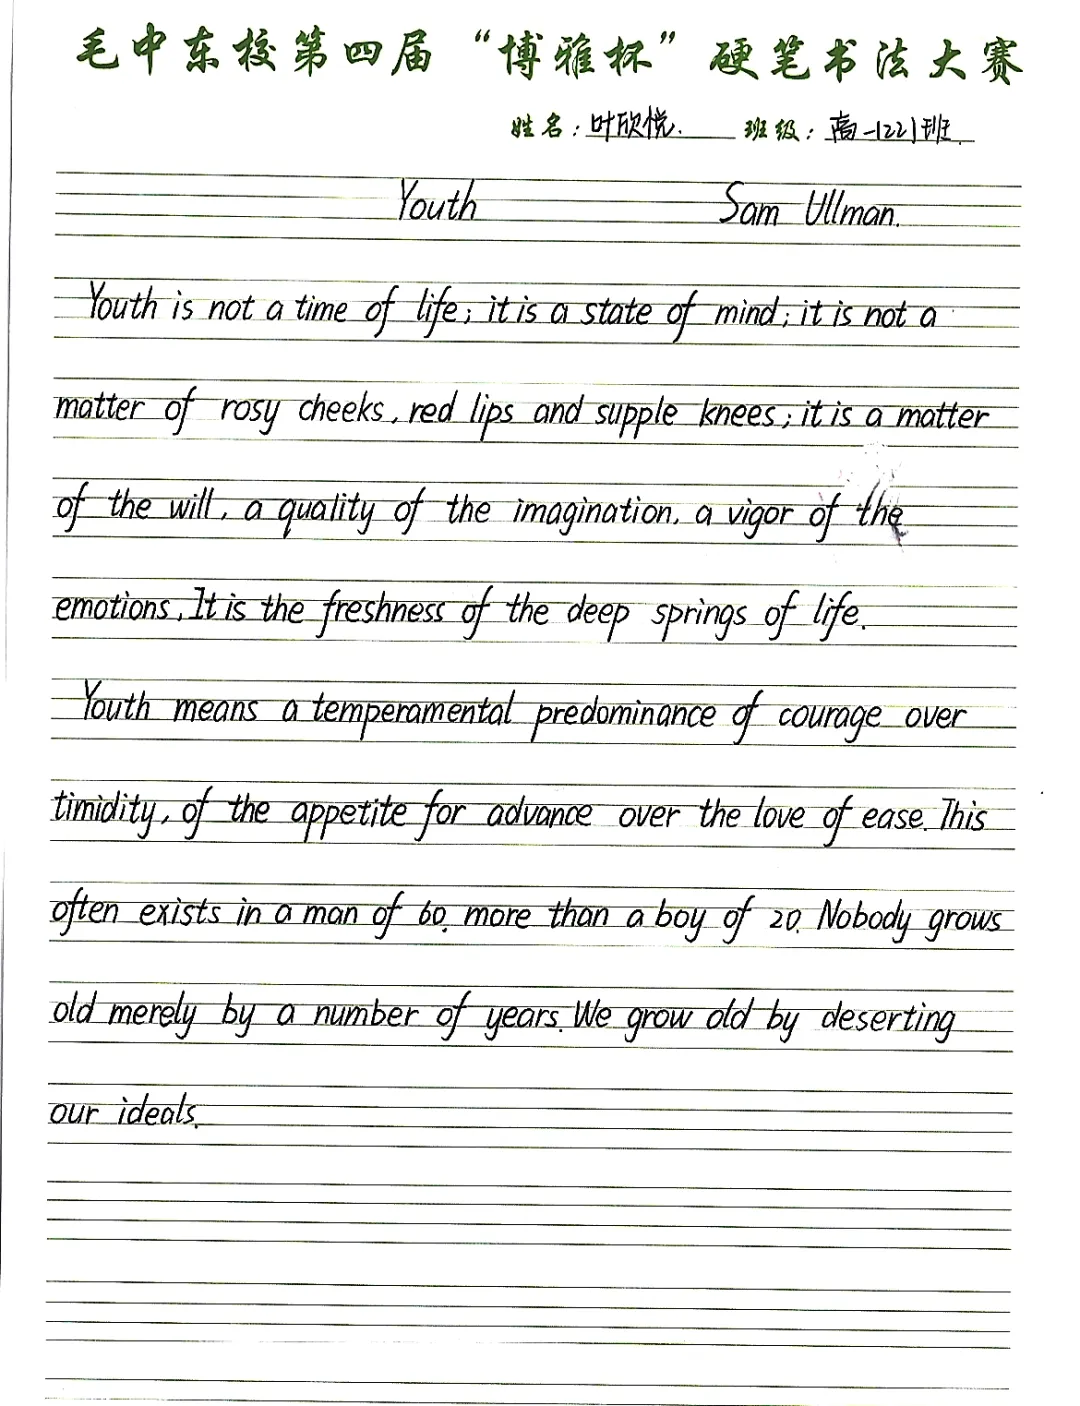 毛中东校第四届“博雅杯”硬笔书法大赛
姓名：叶欣悦. 班级：高一(22)班.
Youth Sam Ullman.
Youth is not a time of life; it is a state of mind; it is not a
matter of rosy cheeks, red lips and supple knees; it is a matter
of the will, a quality of the imagination, a vigor of the
emotions, It is the freshness of the deep springs of life.
Youth means a temperamental predominance of courage over
timidity, of the appetite for advance over the love of ease. This
often exists in a man of 60, more than a boy of 20. Nobody grows
old merely by a number of years. We grow old by deserting
our ideals.